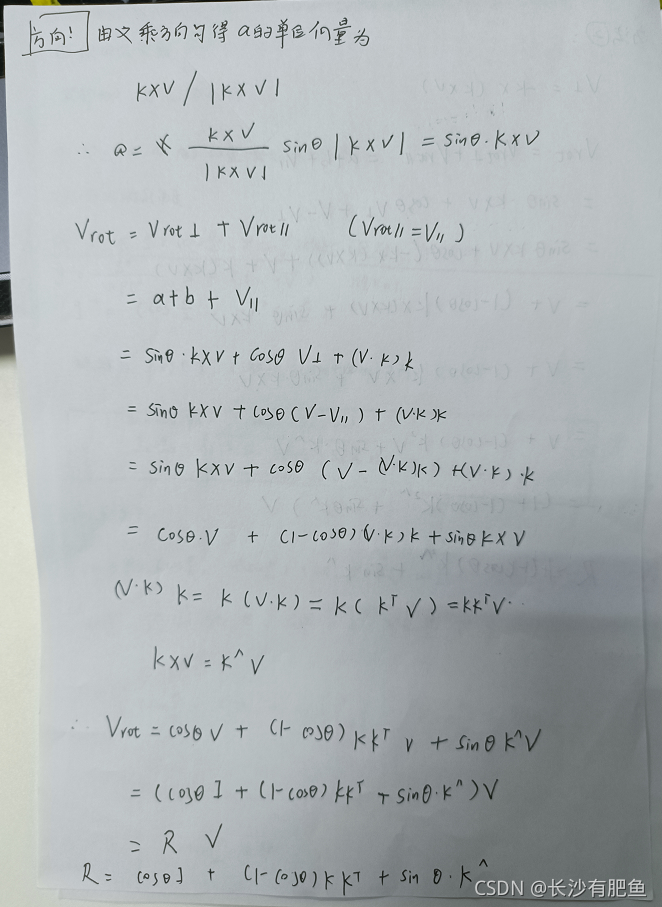 方向! 由叉乘方向可得 a的单位向量为
k×v / |k×v|
∴ a = k×v / |k×v| sinθ |k×v| = sinθ·k×v
Vrot = Vrot⊥ + Vrot∥ (Vrot∥=V∥)
= a+b + V∥
= sinθ·k×v + cosθ V⊥ + (V·k)k
= sinθ k×v + cosθ(V-V∥) + (V·k)k
= sinθ k×v + cosθ (V-(V·k)k) +(V·k)·k
= cosθ·V + (1-cosθ)(V·k)k + sinθ k×v
(V·k) k = k(V·k) = k(kᵀV) = kkᵀV
k×v = k^V
∴ Vrot = cosθ V + (1-cosθ) kkᵀ V + sinθ k^V
= (cosθ I + (1-cosθ) kkᵀ + sinθ·k^)V
= R V
R = cosθ I + (1-cosθ) k kᵀ + sinθ·k^
CSDN @长沙有肥鱼